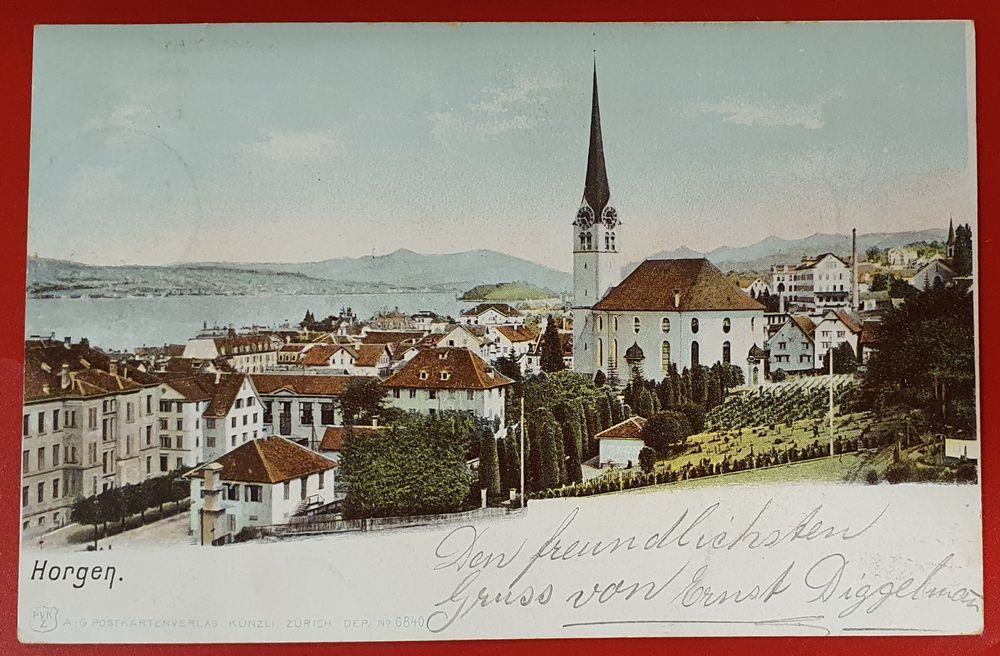 Horgen.
Den freundlichsten
Gruss von Ernst Diggelmann
PVK
Z
A.G. POSTKARTENVERLAG KÜNZLI, ZÜRICH DEP. No 6840